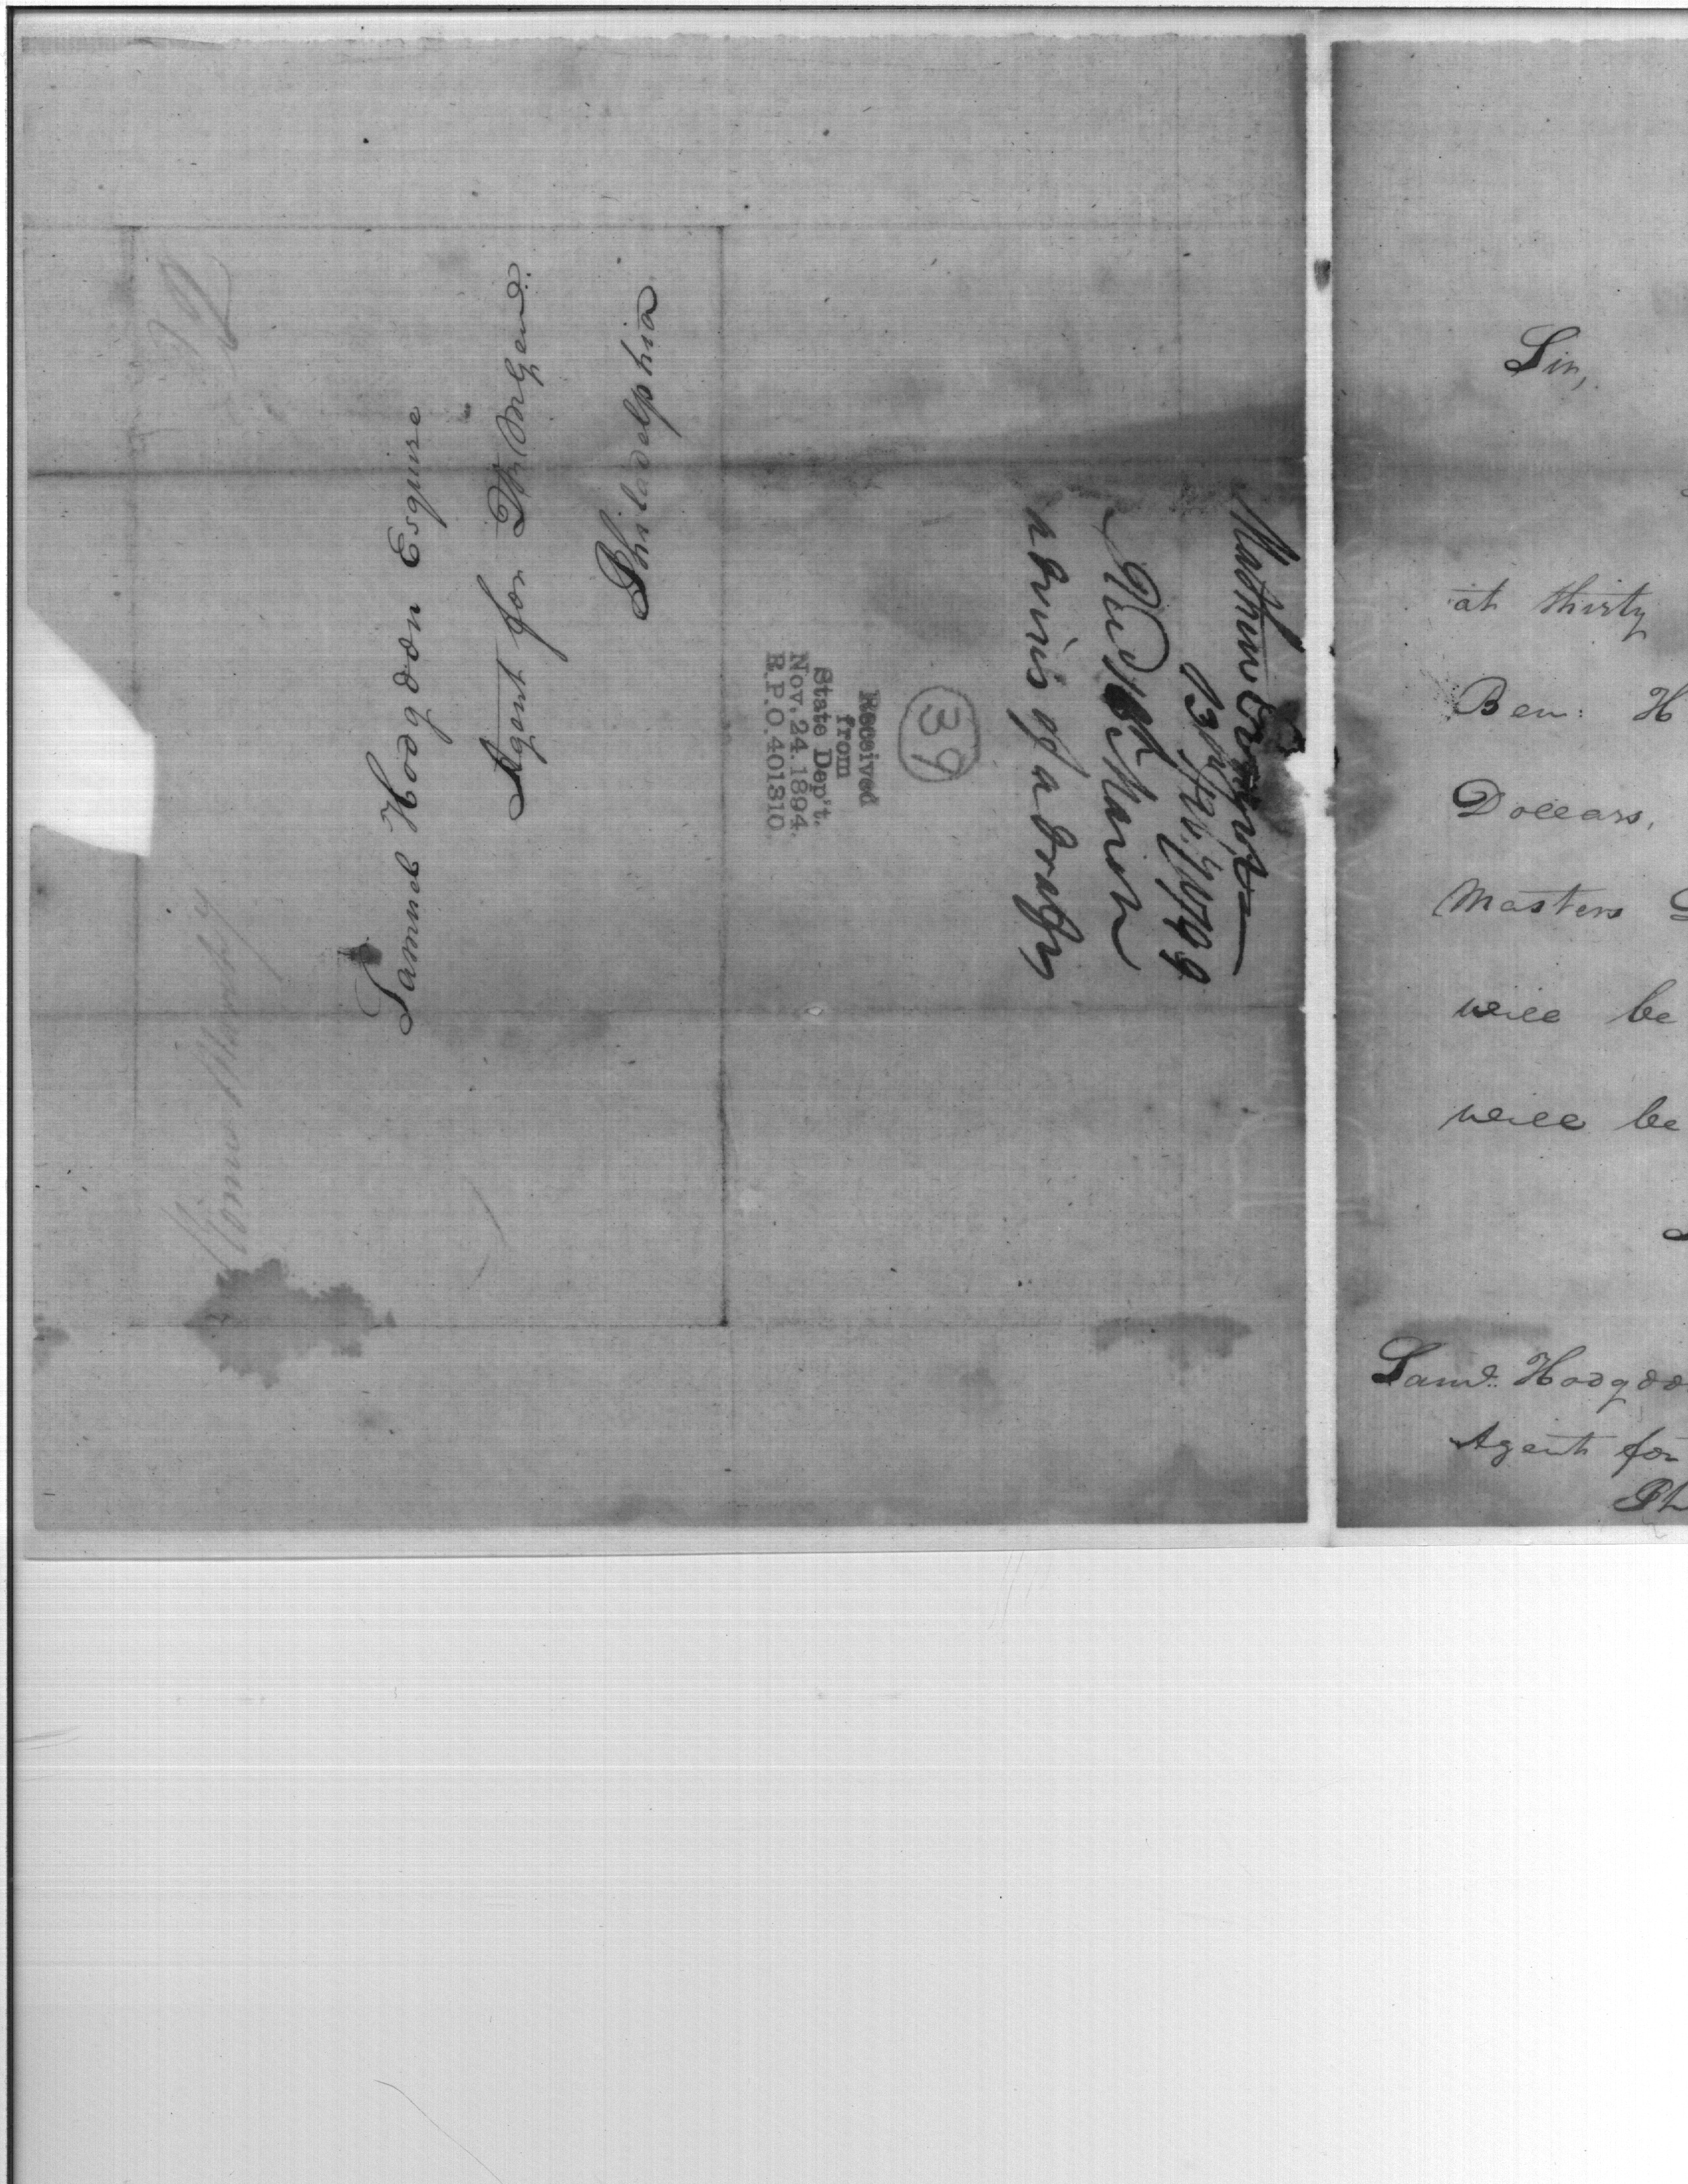 Samuel Hodgdon Esquire
Agent for Qr. M. Genl.
Philadelphia
Matthew Ernest
13th Feby. 1799
Recd. March
advis of a draft
39
Received
from
State Dep't.
Nov. 24. 1894.
R.P.O. 401310.
Sir,
at thirty
Ben: H
Dollars,
Masters
will be
will be
Saml. Hodgdo
Agent for
Ph